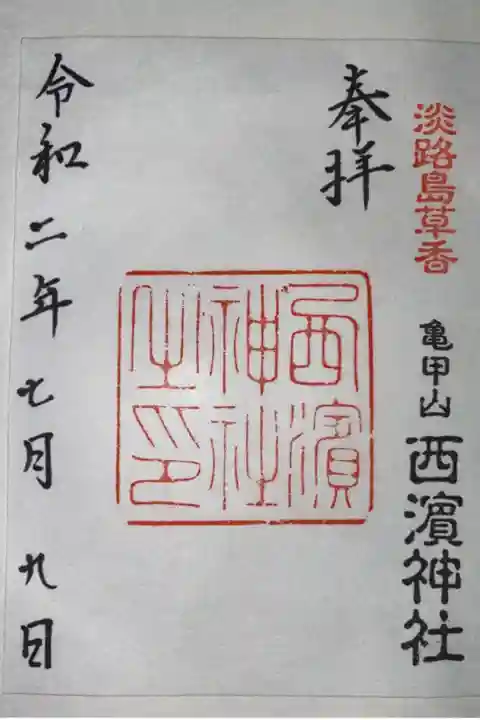 淡路島草香
亀甲山
西濵神社
奉拝
西濵
神社
之印
令和二年七月九日